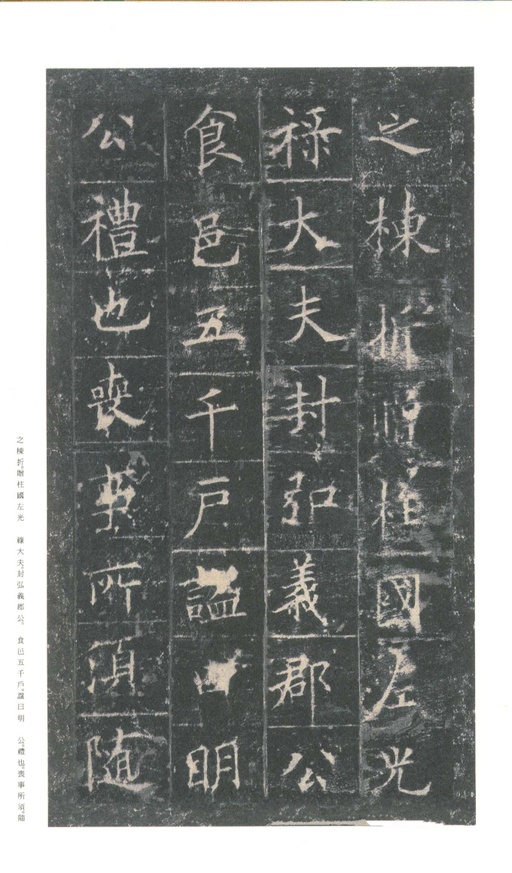 之棟折贈柱國左光
祿大夫封弘義郡公
食邑五千戶謚曰明
公禮也喪事所須隨
之棟折，贈柱國左光 祿大夫，封弘義郡公， 食邑五千戶，謚曰明 公，禮也。喪事所須，隨